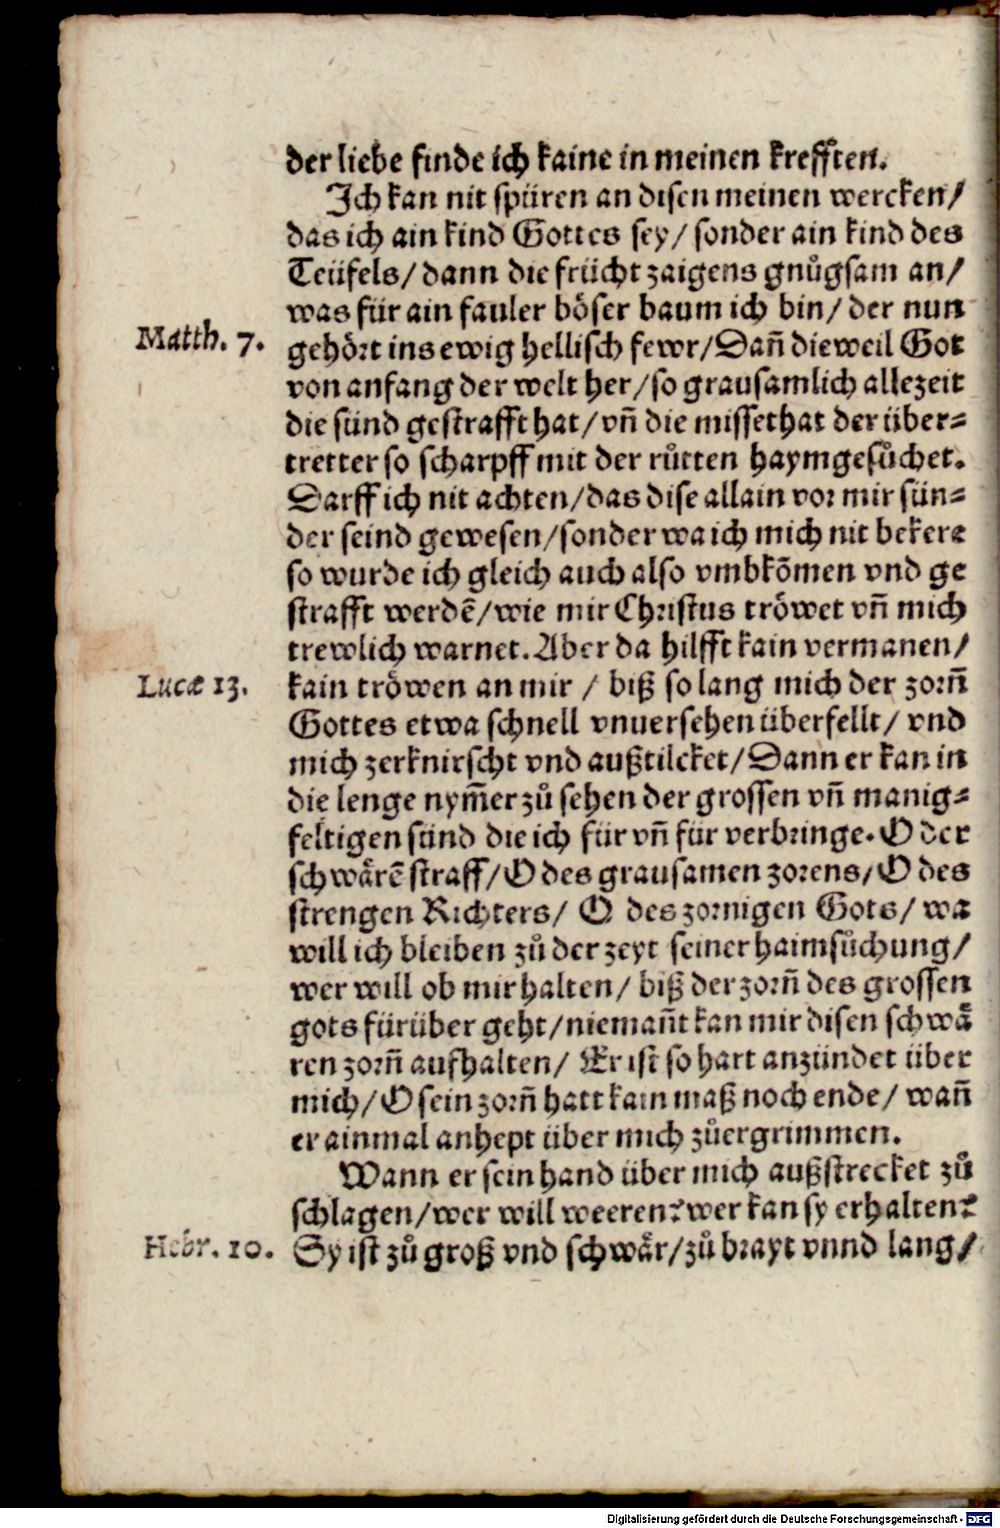 der liebe finde ich kaine in meinen krefften.
Ich kan nit spüren an disen meinen wercken/
das ich ain kind Gottes sey/ sonder ain kind des
Teüfels/ dann die frücht zaigens gnůgsam an/
was für ain fauler böser baum ich bin/ der nun
Matth. 7. gehört ins ewig hellisch fewr/ Dañ dieweil Got
von anfang der welt her/ so grausamlich allezeit
die sünd gestrafft hat/ vñ die missethat der über=
tretter so scharpff mit der růtten haymgesůchet.
Darff ich nit achten/ das dise allain vor mir sün=
der seind gewesen/ sonder wa ich mich nit bekere
so wurde ich gleich auch also vmbkõmen vnd ge
strafft werdẽ/ wie mir Christus tröwet vñ mich
trewlich warnet. Aber da hilfft kain vermanen/
Lucæ 13. kain tröwen an mir / biß so lang mich der zorñ
Gottes etwa schnell vnuersehen überfellt/ vnd
mich zerknirscht vnd außtilcket/ Dann er kan in
die lenge nym̃er zů sehen der grossen vñ manig=
feltigen sünd die ich für vñ für verbringe. O der
schwårẽ straff/ O des grausamen zorens/ O des
strengen Richters/ O des zornigen Gots/ wa
will ich bleiben zů der zeyt seiner haimsůchung/
wer will ob mir halten/ biß der zorñ des grossen
gots fürüber geht/ niemañt kan mir disen schwå
ren zorñ aufhalten/ Er ist so hart anzündet über
mich/ O sein zorñ hatt kain maß noch ende/ wañ
er ainmal anhept über mich zůergrimmen.
Wann er sein hand über mich außstrecket zů
schlagen/ wer will weeren? wer kan sy erhalten?
Hebr. 10. Sy ist zů groß vnd schwår/ zů brayt vnnd lang/
Digitalisierung gefördert durch die Deutsche Forschungsgemeinschaft - DFG